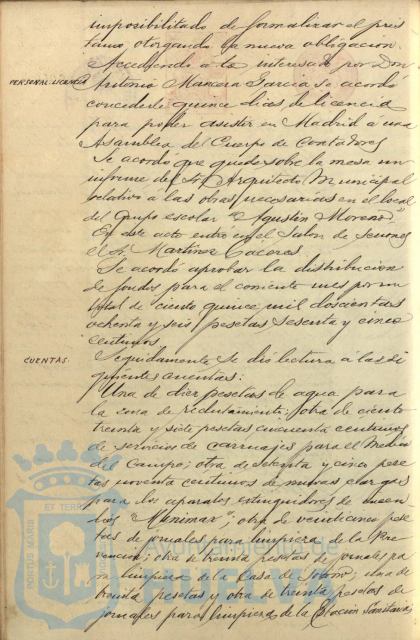 imposibilitado de formalizar el prés
tamo, otorgando la nueva obligación.
Accediendo a lo interesado por Don
PERSONAL: LICENCIA
Antonio Mancera Garcia se acordo
concederle quince dias de licencia
para poder asistir en Madrid á una
Asamblea del Cuerpo de Contadores
Se acordo que quede sobre la mesa un
informe del Sr. Arquitecto Municipal
relativo a las obras necesarias en el local
del Grupo escolar "Agustin Moreno"
En este acto entró en el Salon de sesiones
el Sr. Martinez Caceres.
Se acordó aprobar la distribucion
de fondos para el corriente mes por un
total de ciento quince mil doscientas
ochenta y seis pesetas sesenta y cinco
centimos
CUENTAS.
Seguidamente se dio lectura á las si
guientes cuentas:
Una de diez pesetas de agua para
la zona de reclutamiento; otra de ciento
treinta y siete pesetas cincuenta centimos
de servicios de carruajes para el Medico
del Campo; otra de setenta y cinco pese
tas noventa centimos de nuevas cargas
para los aparatos extinguidores de incen
dios "Minimax"; otra de veinticinco pese
tas de jornales para limpieza de la Pre
vencion; otra de treinta pesetas de jornales pa
ra limpieza de la Casa de Socorro; una de
treinta pesetas y otra de treinta pesetas de
jornales para limpieza de la Estación Sanitaria
PORTUS MARIS
ET TERRAE
Ayuntamiento de
HUELVA